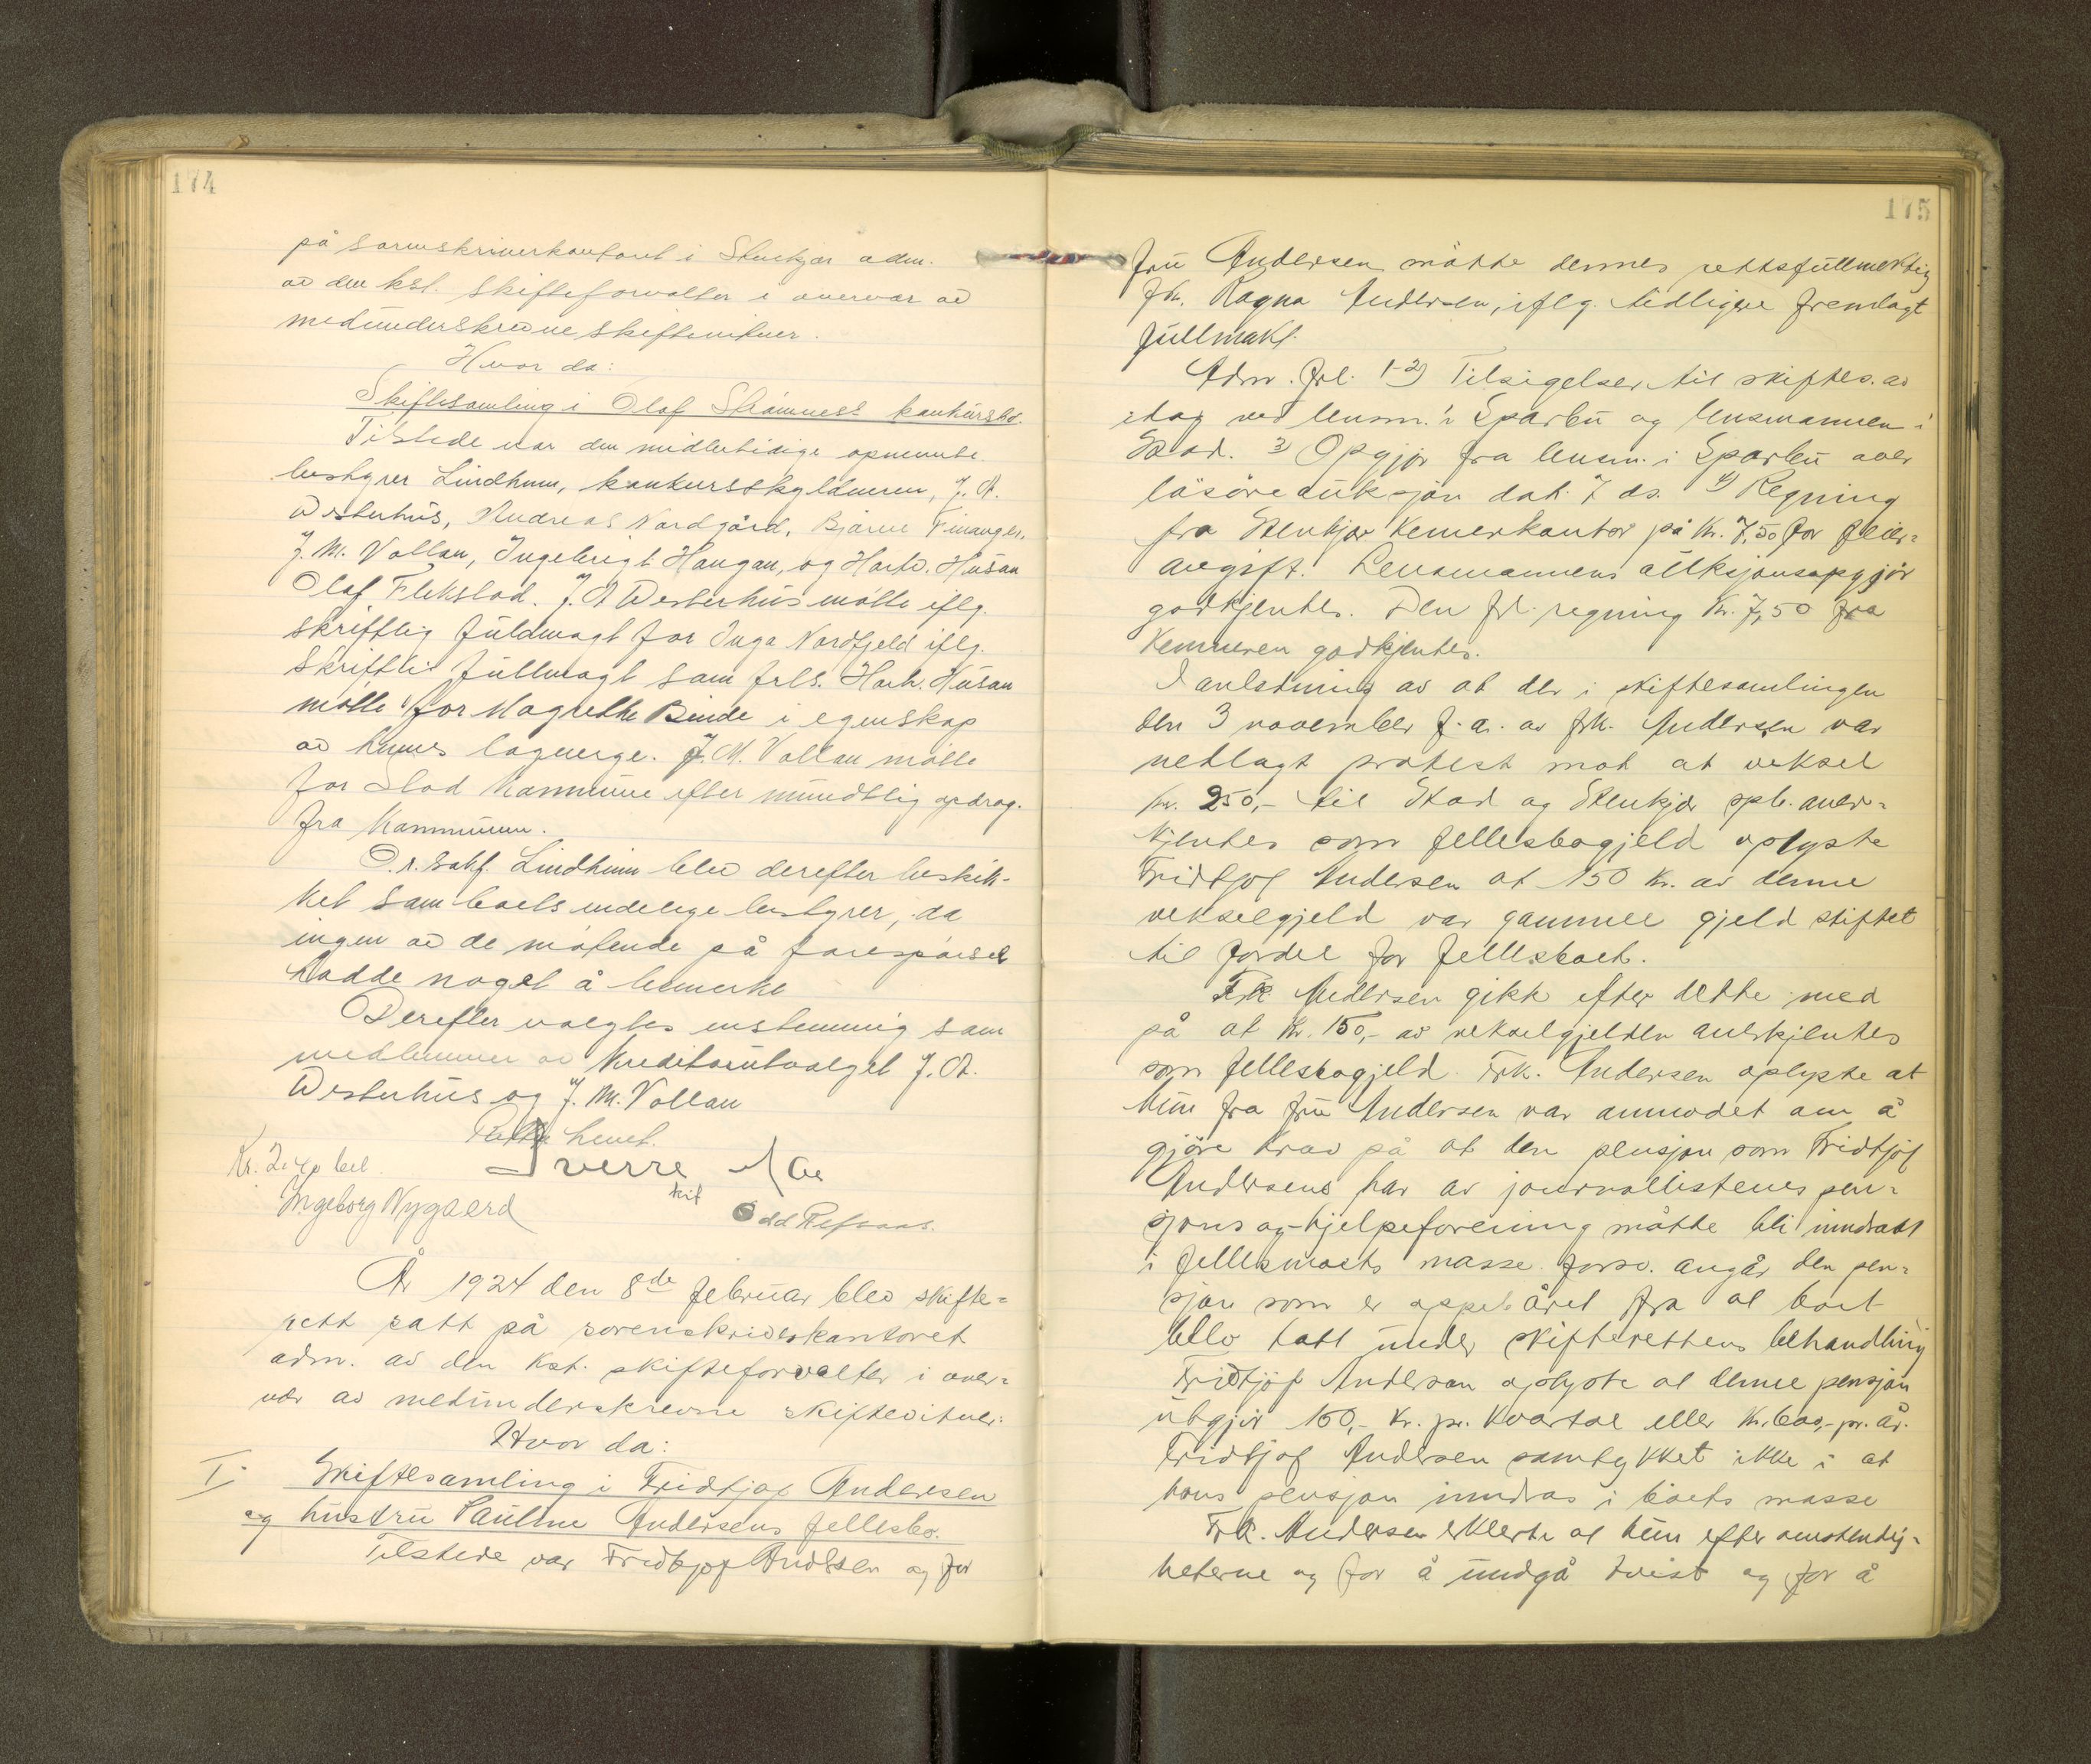 174
på sorenskriverkontoret i Stenkjær adm.
av den kst. skifteforvalter i overvær av
medunderskrevne skiftevitner.
Hvor da:
Skiftesamling i Olaf Strømnes konkursbo.
Tilstede var den midlertidige opnevnte
bestyrer Lindheim, konkursskyldneren, J. A.
Westerhus, Andreas Nordgård, Bjarne Finanger,
J. M. Vollan, Ingebrigt Haugan, og Hartv. Husan
Olaf Flekstad. J. A Westerhus møtte iflg.
skriftlig fuldmagt for Inga Nordfjeld iflg.
skriftlig fullmagt som frls. Hartv. Husan
møtte for Magrethe Binde i egenskap
av hennes lagverge. J. M. Vollan møtte
for Stod Kommune efter mundtlig opdrag.
fra Kommunen.
O.r.sakf. Lindheim blev derefter beskik-
ket som boets endelige bestyrer, da
ingen av de møtende på forespørsel
hadde noget å bemerke
Derefter valgtes enstemmig som
medlemmer av Kreditorutvalget J. A.
Westerhus og J. M. Vollan
Retten hevet.
Kr. 2.40 bet.
Sverre
Ingeborg Nygaard
Odd Refsaas.
År 1924 den 8de februar blev skifte=
rett satt på sorenskriverkontoret
adm. av den Kst. skifteforvalter i over=
vær av medunderskrevne skiftevitner:
Hvor da:
I. Skiftesamling i Fridtjof Andersen
og hustru Pauline Andersens fellesbo.
Tilstede var Fridtjof Andersen og for
175
fru Andersen møtte dennes rettsfullmektig
frk. Ragna Andersen, iflg. tidligere fremlagt
fullmakt.
Adm. frl. 1-2) Tilsigelser til skiftes. av
idag ved lensm. i Sparbu og lensmannen i
Stod. 3) Opgjør fra lensm. i Sparbu over
løsøreauksjon dat. 7 ds. 4) Regning
fra Stenkjær Kemnerkontor på Kr. 7,50 for feier=
avgift. Lensmannens auksjonsopgjør
godkjentes. Den frl. regning Kr. 7,50 fra
Kemneren godkjentes.
I anledning av at der i skiftesamlingen
den 3 november f. a. av frk. Andersen var
nedlagt protest mot at veksel
kr. 250,- til Stod og Stenkjær spb. aner=
kjentes som fellesbogjeld oplyste
Fridtjof Andersen at 150 Kr. av denne
vekselgjeld var gammel gjeld stiftet
til fordel for fellesboet.
Frk. Andersen gikk efter dette med
på at Kr. 150,- av vekselgjelden anerkjentes
som fellesbogjeld. Frk. Andersen oplyste at
hun fra fru Andersen var anmodet om å
gjøre krav på at den pensjon som Fridtjof
Andersens har av journalistenes pen=
sjons og hjelpeforening måtte bli inndradt
i fellesboets masse forsv. angår den pen=
sjon som er oppebåret fra at boet
blev tatt under skifterettens behandling
Fridtjof Andersen oplyste at denne pensjon
utgjør 150,- Kr. pr. kvartal eller Kr. 600,- pr. år.
Fridtjof Andersen samtykket ikke i at
hans pensjon inndras i boets masse
Frk. Andersen erklerte at hun efter omstendig=
heterne og for å undgå tvist og for å